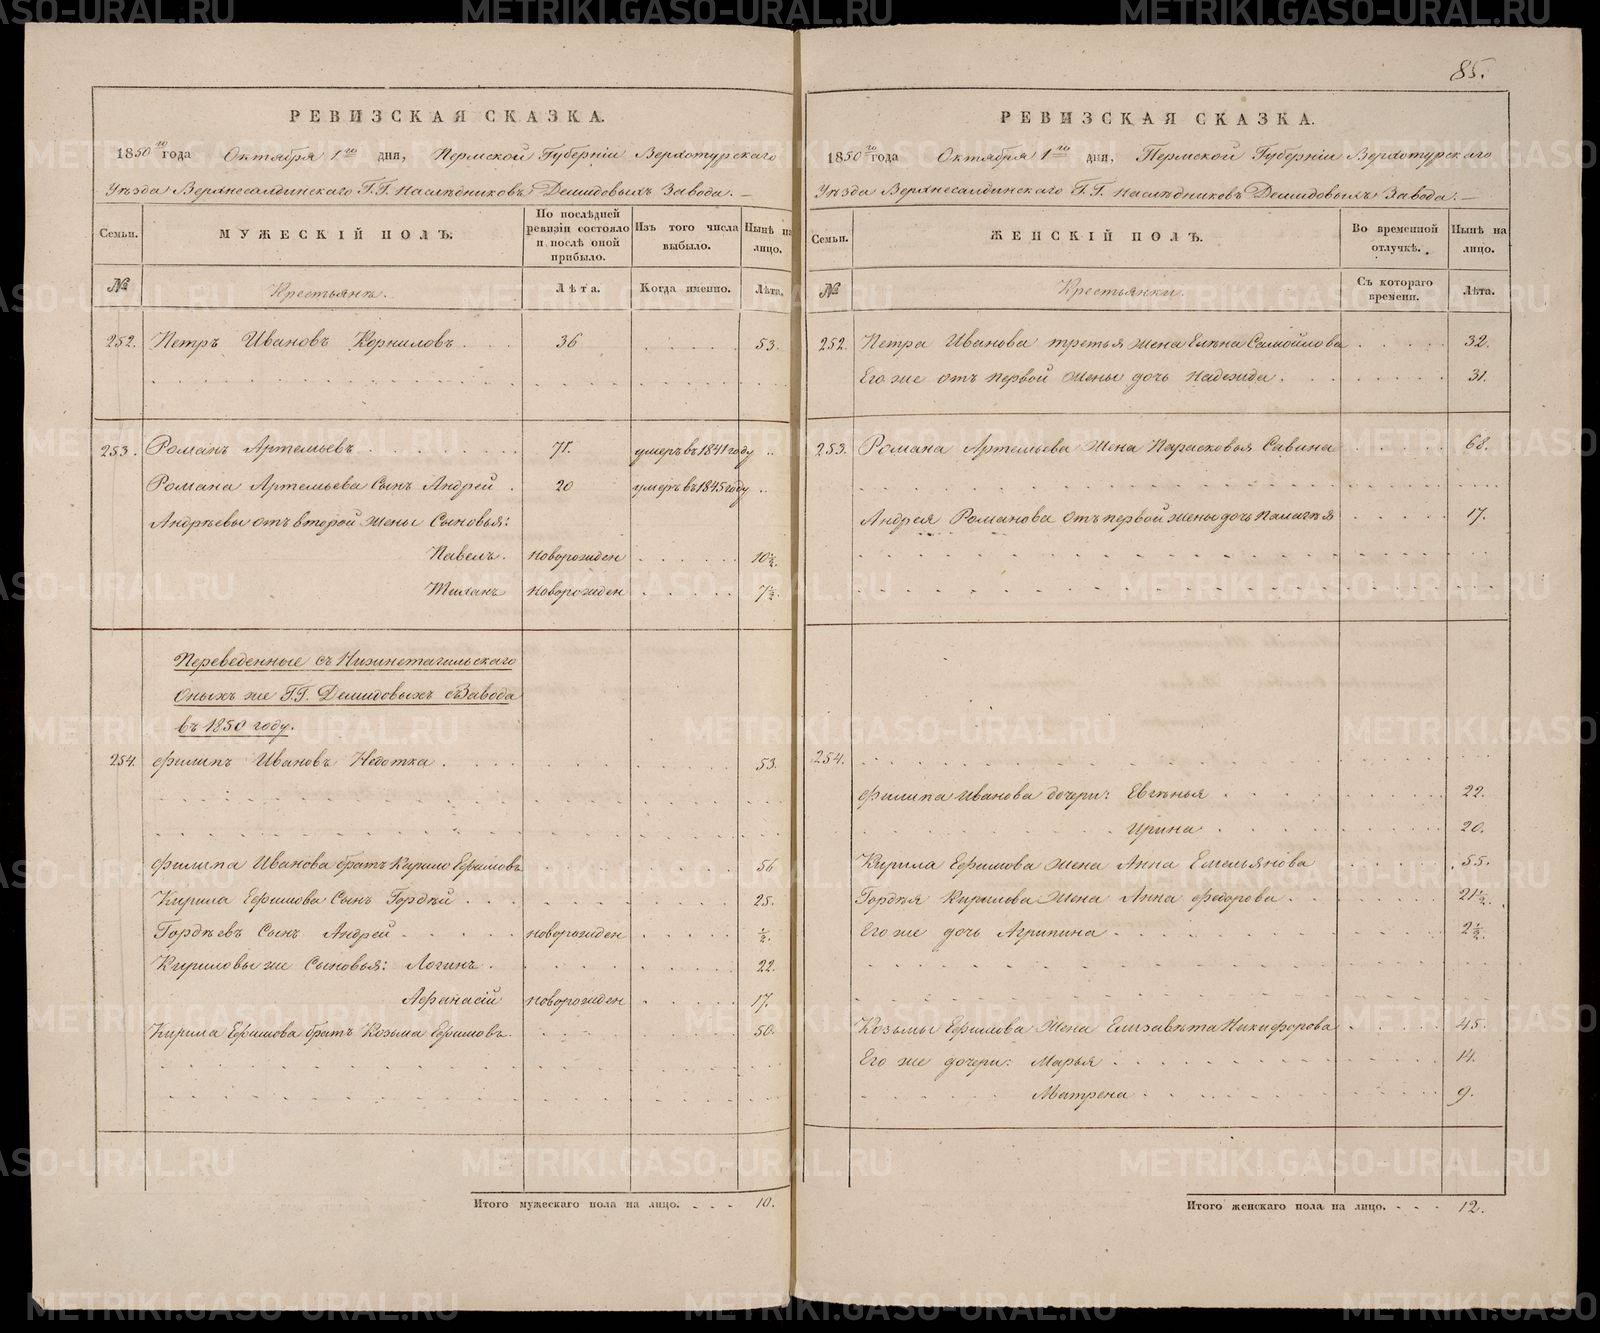 85.
РЕВИЗСКАЯ СКАЗКА.
1850го года Октября 1го дня, Пермской Губерніи Верхотурскаго
Уѣзда Верхнесалдинскаго Г.Г. Наслѣдниковъ Демидовыхъ Завода.
Семьи.
МУЖЕСКІЙ ПОЛЪ.
По послѣдней ревизіи состояло и послѣ оной прибыло.
Изъ того числа выбыло.
Нынѣ на лицо.
№
Крестьянъ.
Лѣта.
Когда именно.
Лѣта.
252. Петръ Ивановъ Корниловъ 36 53.
253. Романъ Артемьевъ 71. умеръ въ 1841 году
Романа Артемьева Сынъ Андрей 20 умеръ въ 1845 году
Андрѣевы отъ второй жены Сыновья:
Павелъ. новорожден 10½.
новорожден 7½.
Переведенные съ Нижнетагильскаго
Оныхъ же Г.Г. Демидовыхъ Завода
въ 1850 году.
254. Филипъ Ивановъ Недотка 53.
Филипа Иванова братъ Кирило Ефимовъ 56
Кирила Ефимова Сынъ Гордѣй 25.
Гордѣевъ Сынъ Андрей новорожден ½.
Кириловы же Сыновья: Логинъ 22.
Афанасій новорожден 17.
Кирила Ефимова братъ Козьма Ефимовъ 50.
Итого мужескаго пола на лицо. 10.
РЕВИЗСКАЯ СКАЗКА.
1850го года Октября 1го дня, Пермской Губерніи Верхотурскаго
Уѣзда Верхнесалдинскаго Г.Г. Наслѣдниковъ Демидовыхъ Завода.
Семьи.
ЖЕНСКІЙ ПОЛЪ.
Во временной отлучкѣ.
Нынѣ на лицо.
№
Крестьянки.
Съ котораго времени.
Лѣта.
252. Петра Иванова третья жена Елѣна Самойлова 32.
Его же отъ первой жены дочь Надежда 31.
253. Романа Артемьева Жена Парасковья Савина 68.
Андрея Романова отъ первой жены дочь Палагѣя 17.
254.
Филипа Иванова дочери: Евгѣнья 22.
Ирина 20.
Кирила Ефимова Жена Анна Емельянова 55.
Гордѣя Кирилова Жена Анна Федорова 21½.
Его же дочь Агрипина 2½.
Козьмы Ефимова Жена Елизавѣта Никифорова 45.
Его же дочери: Марья 14.
Матрена 9.
Итого женскаго пола на лицо. 12.
METRIKI.GASO-URAL.RU